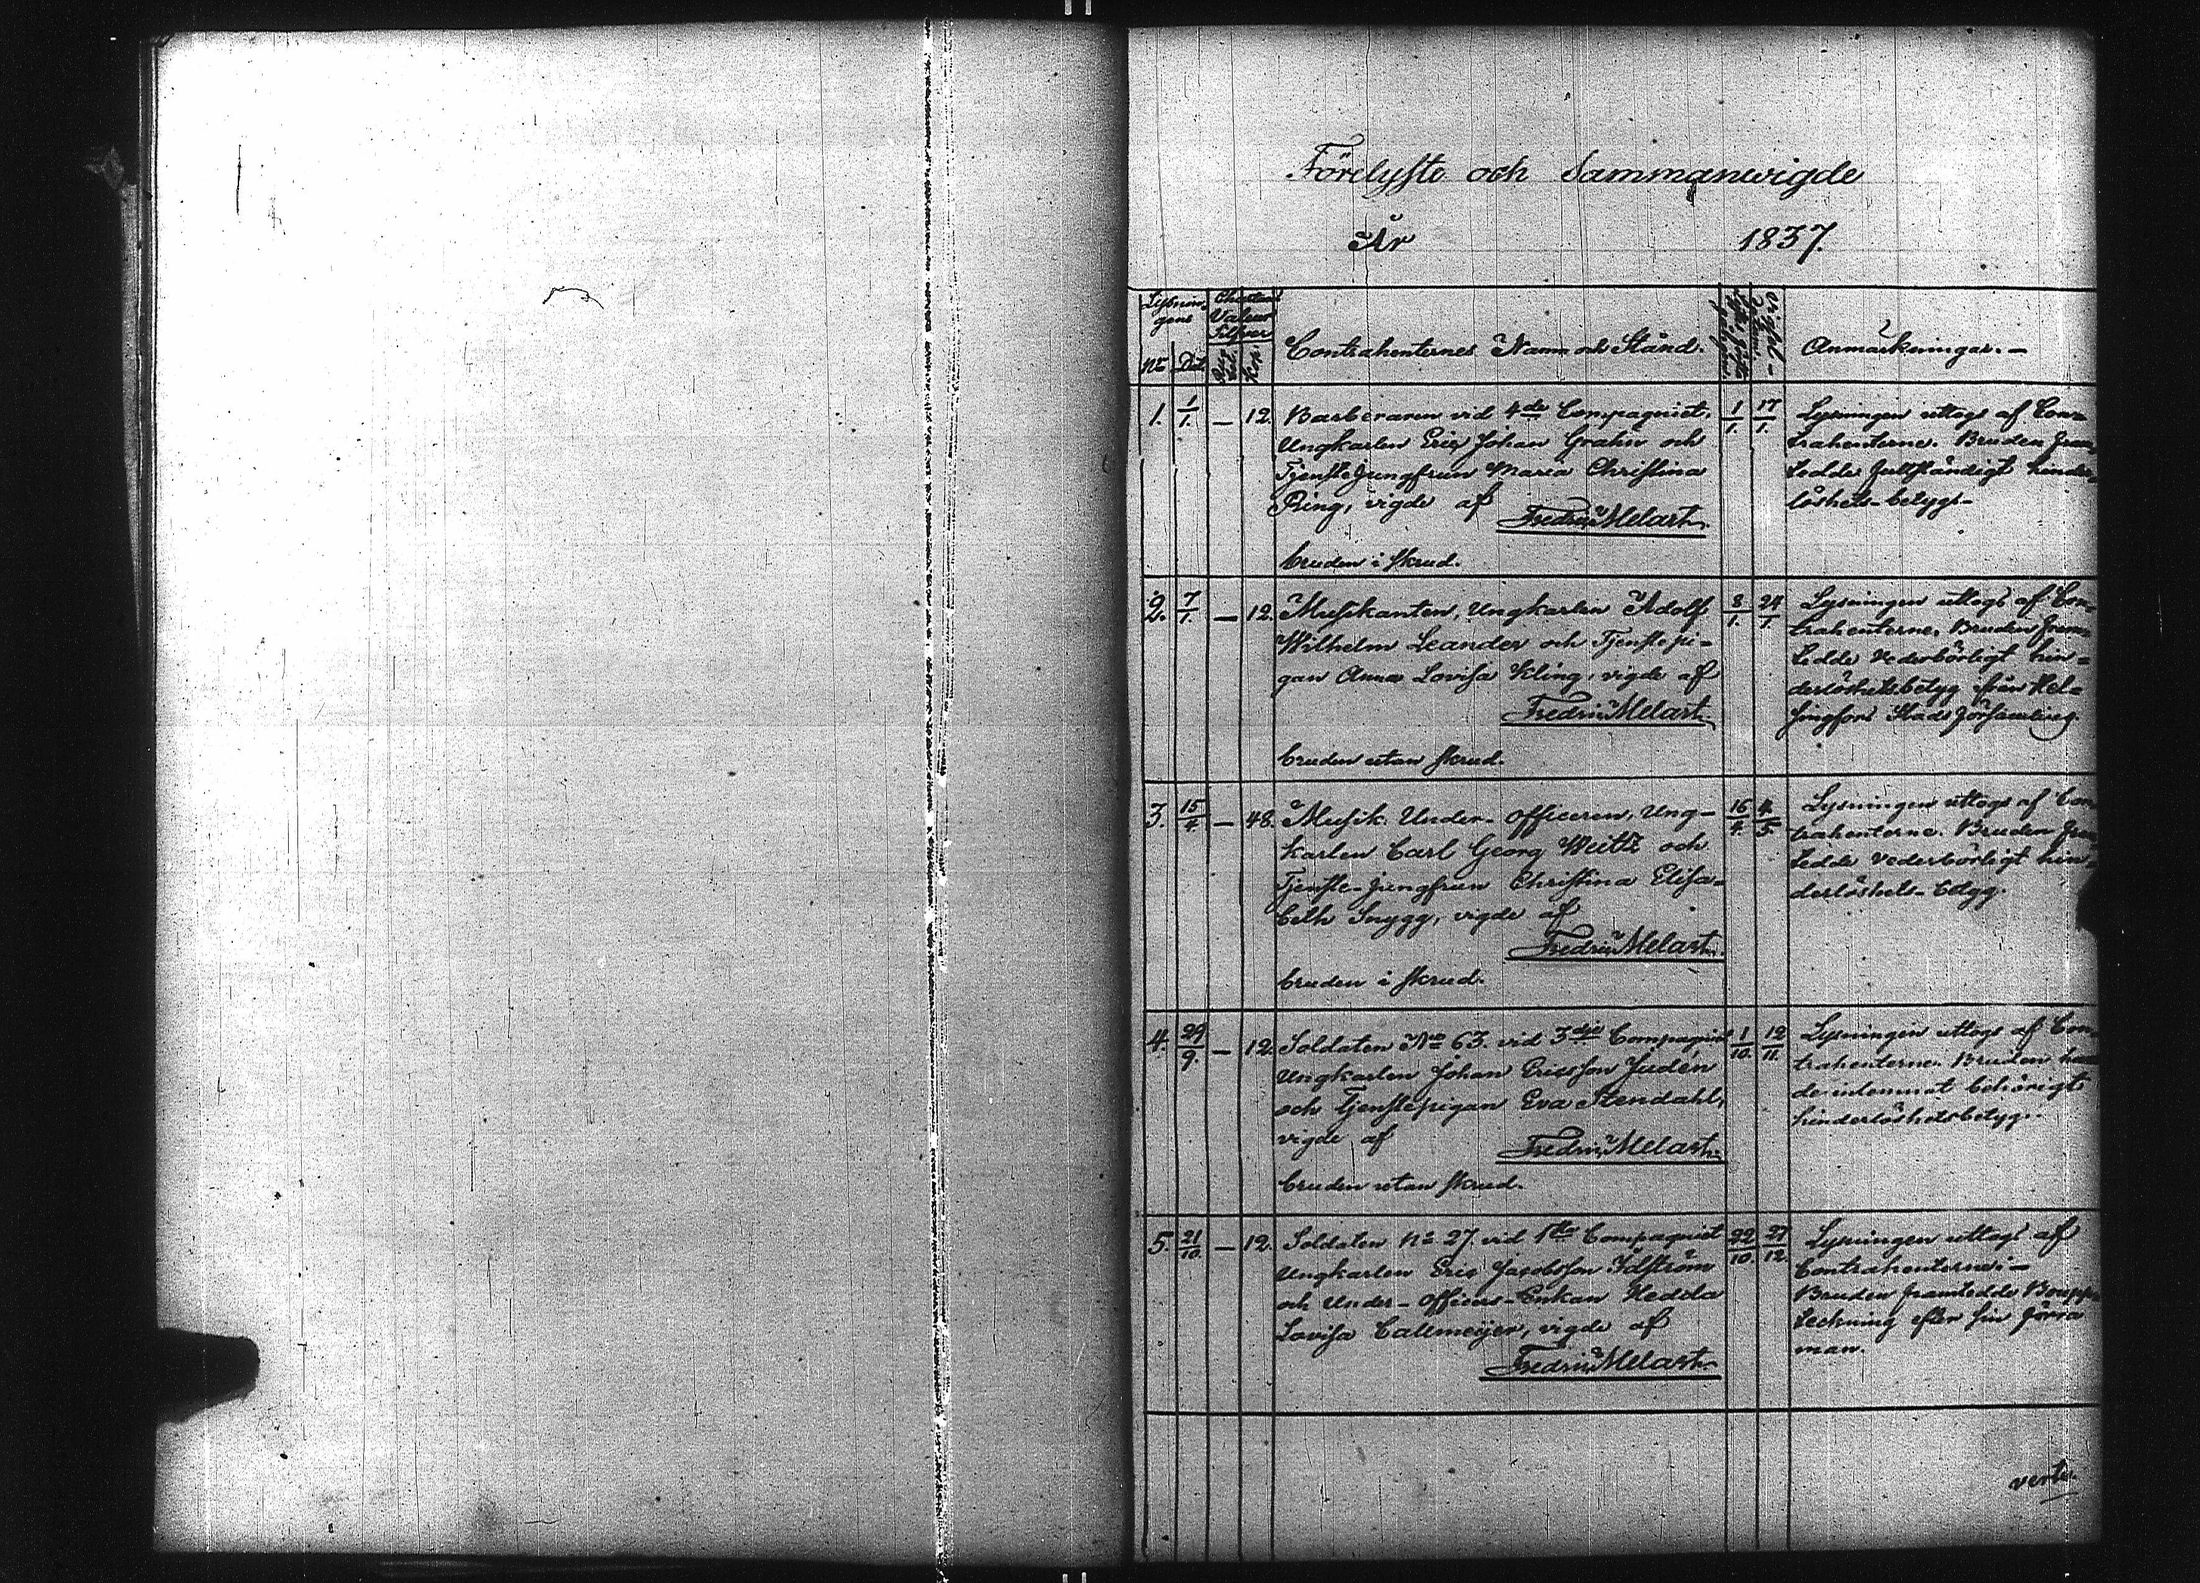 Förelyste och Sammanwigde
År 1837.
Lysnin-
gens
No Dat
Valeur
Silfver
Kop.
Contrahenternes Namn och Stånd.
Anmärkningar.-
1. 1/1. - 12. Barberaren vid 4de Compagniet, 1/1. 17/1.
Ungkarlen Eric Johan Grahn och
Tjenstejungfrun Maria Christina
Ring, vigde af
Fredric Melart.
bruden i skrud.
Lysningen uttogs af Con-
trahenterne. Bruden fram-
tedde fullständigt hinder-
löshets-betyg.-
2. 7/1. - 12. Musikanten, Ungkarlen Adolf 8/1. 24/1.
Wilhelm Leander och Tjenstepi-
gan Anna Lovisa Kling, vigde af
Fredric Melart.
bruden utan skrud.
Lysningen uttogs af Con-
trahenterne. Bruden fram-
tedde vederbörligt hin-
derlöshetsbetyg från Hel-
singfors Stads församling.
3. 15/4. - 48. Musik. Under-officeren, Ung- 16/4. 4/5.
karlen Carl Georg Weitz och
Tjenste-jungfrun Christina Elisa-
beth Snygg, vigde af
Fredric Melart.
bruden i skrud.
Lysningen uttogs af Con-
trahenterne. Bruden fram-
tedde vederbörligt hin-
derlöshets-betyg.
4. 29/9. - 12. Soldaten No 63. vid 3dje Compagniet 1/10. 12/11.
Ungkarlen Johan Ericsson Judén
och Tjenstepigan Eva Stendahl,
vigde af
Fredric Melart.
bruden utan skrud.
Lysningen uttogs af Con-
trahenterne. Bruden ha-
de inlemnat behörigt
hinderlöshetsbetyg.
5. 21/10. - 12. Soldaten No 27. vid 1sta Compagniet 22/10. 27/12.
Ungkarlen Eric Jacobsson Idström
och Under-officers-Enkan Hedda
Lovisa Callmeijer, vigde af
Fredric Melart.
Lysningen uttogs af
Contrahenterne.-
Bruden framtedde Bouppe-
teckning efter sin förra
man.
verte.